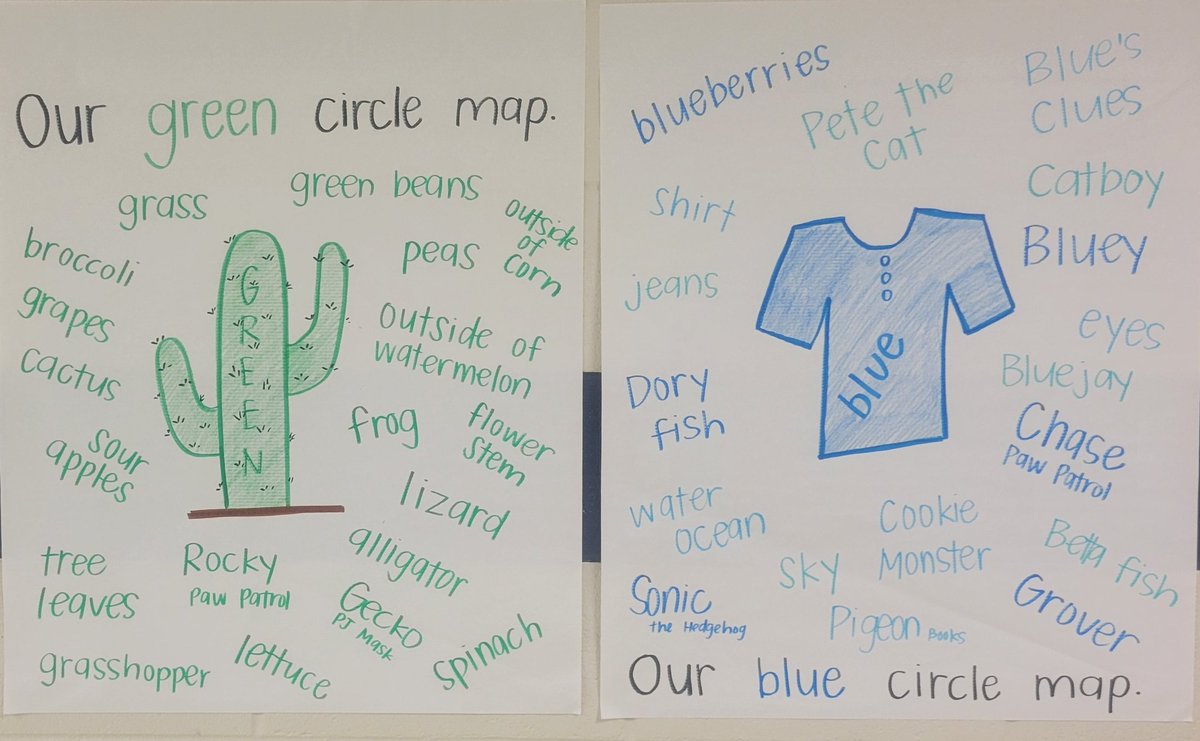 Our green circle map.
grass
green beans
outside
of
corn
broccoli
peas
grapes
outside of
watermelon
cactus
GREEN
frog
flower
stem
sour
apples
lizard
alligator
tree
leaves
Rocky
Paw Patrol
Gecko
PJ Mask
spinach
grasshopper
lettuce
blueberries
Pete the
Cat
Blue's
Clues
shirt
Catboy
Bluey
jeans
eyes
blue
Bluejay
Dory
fish
Chase
Paw Patrol
water
ocean
Cookie
Monster
sky
Betta fish
Sonic
the Hedgehog
Pigeon Books
Grover
Our blue circle map.